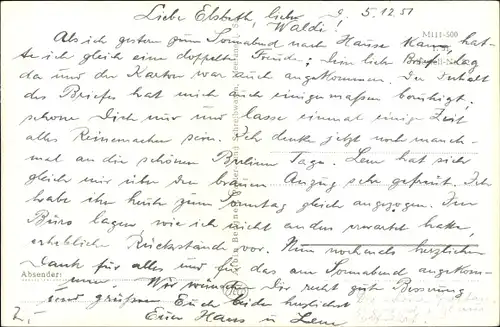 Liebe Elsbeth, lieber Waldi!
5.12.51
M111-500
Als ich gestern zum Sonnabend nach Hause kam, hat-
te ich gleich eine doppelte Freude; Dein lieb. Brief lag
da und der Karton war auch angekommen. Der Inhalt
des Briefes hat mich auch einigermaßen beruhigt;
schone Dich nur und lasse einmal einige Zeit
alles Reinemachen sein. Ich denke jetzt noch manch-
mal an die schönen Berliner Tage. Leni hat sich
gleich mir über den braunen Anzug sehr gefreut. Ich
habe ihn heute zum Sonntag gleich angezogen. Im
Büro lagen, wie ich nicht anders erwartet hatte,
erhebliche Rückstände vor. Nun nochmals herzlichen
Dank für alles und für das am Sonnabend angekom-
mene. Wir wünschen Dir recht gute Besserung
und grüßen Euch beide herzlichst
Eure Hans u. Leni
Absender: